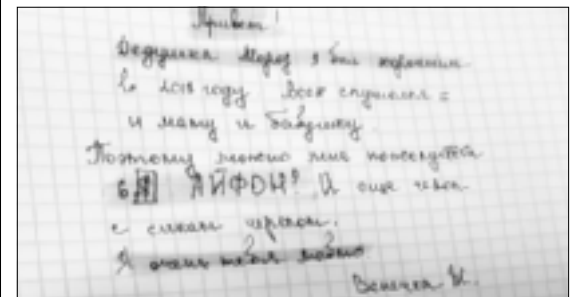 Привет!
Дедушка Мороз я был хорошим
в 2018 году Всех слушался =
и маму и бабушку
Поэтому можно мне пожалуйста
АЙФОН? И еще чехол
с черепом.
Я очень тебя люблю
Венечка И.